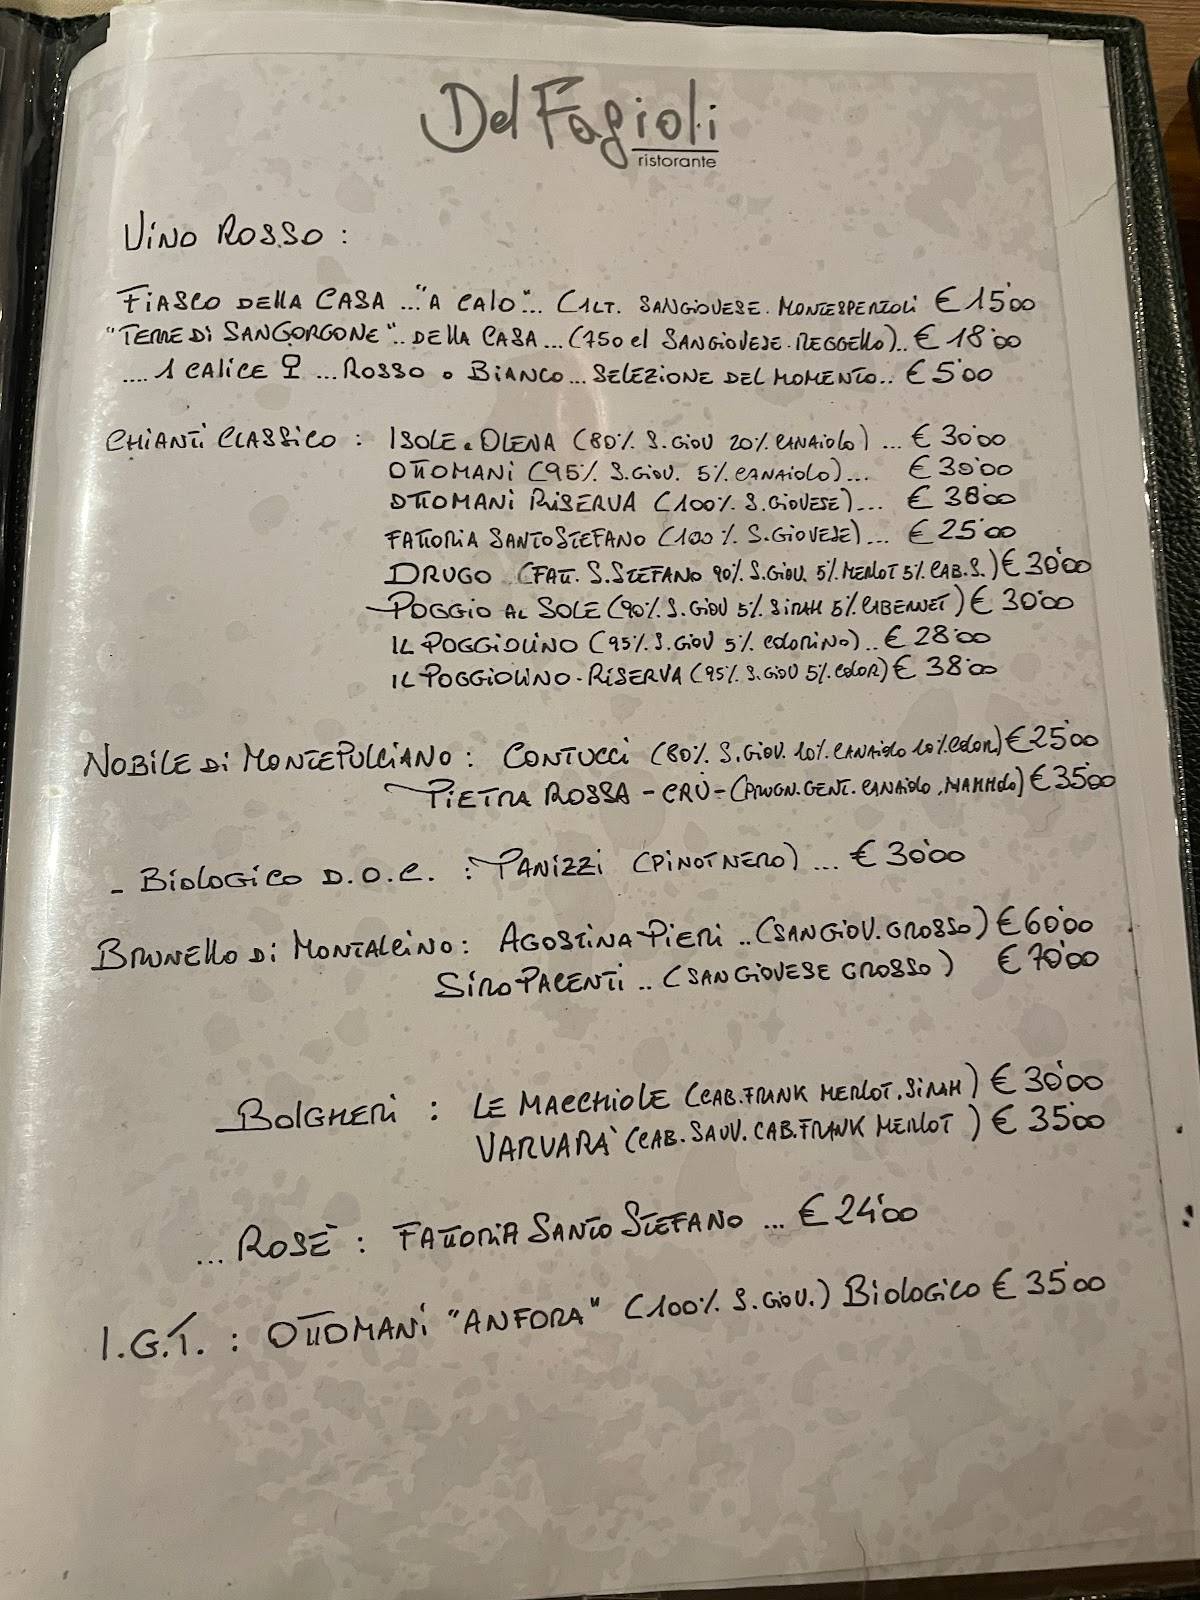 Del Fagioli
ristorante
VINO ROSSO :
FIASCO DELLA CASA ..."A CALO"... (1LT. SANGIOVESE. MONTESPERTOLI € 15'00
"TERRE DI SANGORGONE".. DELLA CASA...(750 cl SANGIOVESE. REGGELLO).. € 18'00
.... 1 CALICE ... ROSSO O BIANCO... SELEZIONE DEL MOMENTO.. € 5'00
CHIANTI CLASSICO : ISOLE e OLENA (80% S.GIOV 20% CANAIOLO) ... € 30'00
OTTOMANI (95% S.GIOV. 5% CANAIOLO)... € 30'00
OTTOMANI RISERVA (100% S.GIOVESE)... € 38'00
FATTORIA SANTO STEFANO (100% S.GIOVESE)... € 25'00
DRUGO (FATT. S.STEFANO 90% S.GIOV. 5% MERLOT 5% CAB.S.) € 30'00
POGGIO AL SOLE (90% S.GIOV 5% SIRAH 5% CABERNET) € 30'00
IL POGGIOLINO (95% S.GIOV 5% COLORINO).. € 28'00
IL POGGIOLINO - RISERVA (95% S.GIOV 5% COLOR) € 38'00
NOBILE DI MONTEPULCIANO : CONTUCCI (80% S.GIOV. 10% CANAIOLO 10% COLOR) € 25'00
PIETRA ROSSA - CRÙ - (PRUGN. GENT. CANAIOLO, MAMMOLO) € 35'00
- BIOLOGICO D.O.C. : PANIZZI (PINOT NERO) ... € 30'00
BRUNELLO DI MONTALCINO : AGOSTINA PIERI .. (SANGIOV. GROSSO) € 60'00
SIRO PACENTI .. (SANGIOVESE GROSSO) € 70'00
BOLGHERI : LE MACCHIOLE (CAB. FRANK MERLOT. SIRAH) € 30'00
VARVARA' (CAB. SAUV. CAB. FRANK MERLOT ) € 35'00
... ROSÈ : FATTORIA SANTO STEFANO ... € 24'00
I.G.T. : OTTOMANI "ANFORA" (100% S.GIOV.) BIOLOGICO € 35'00